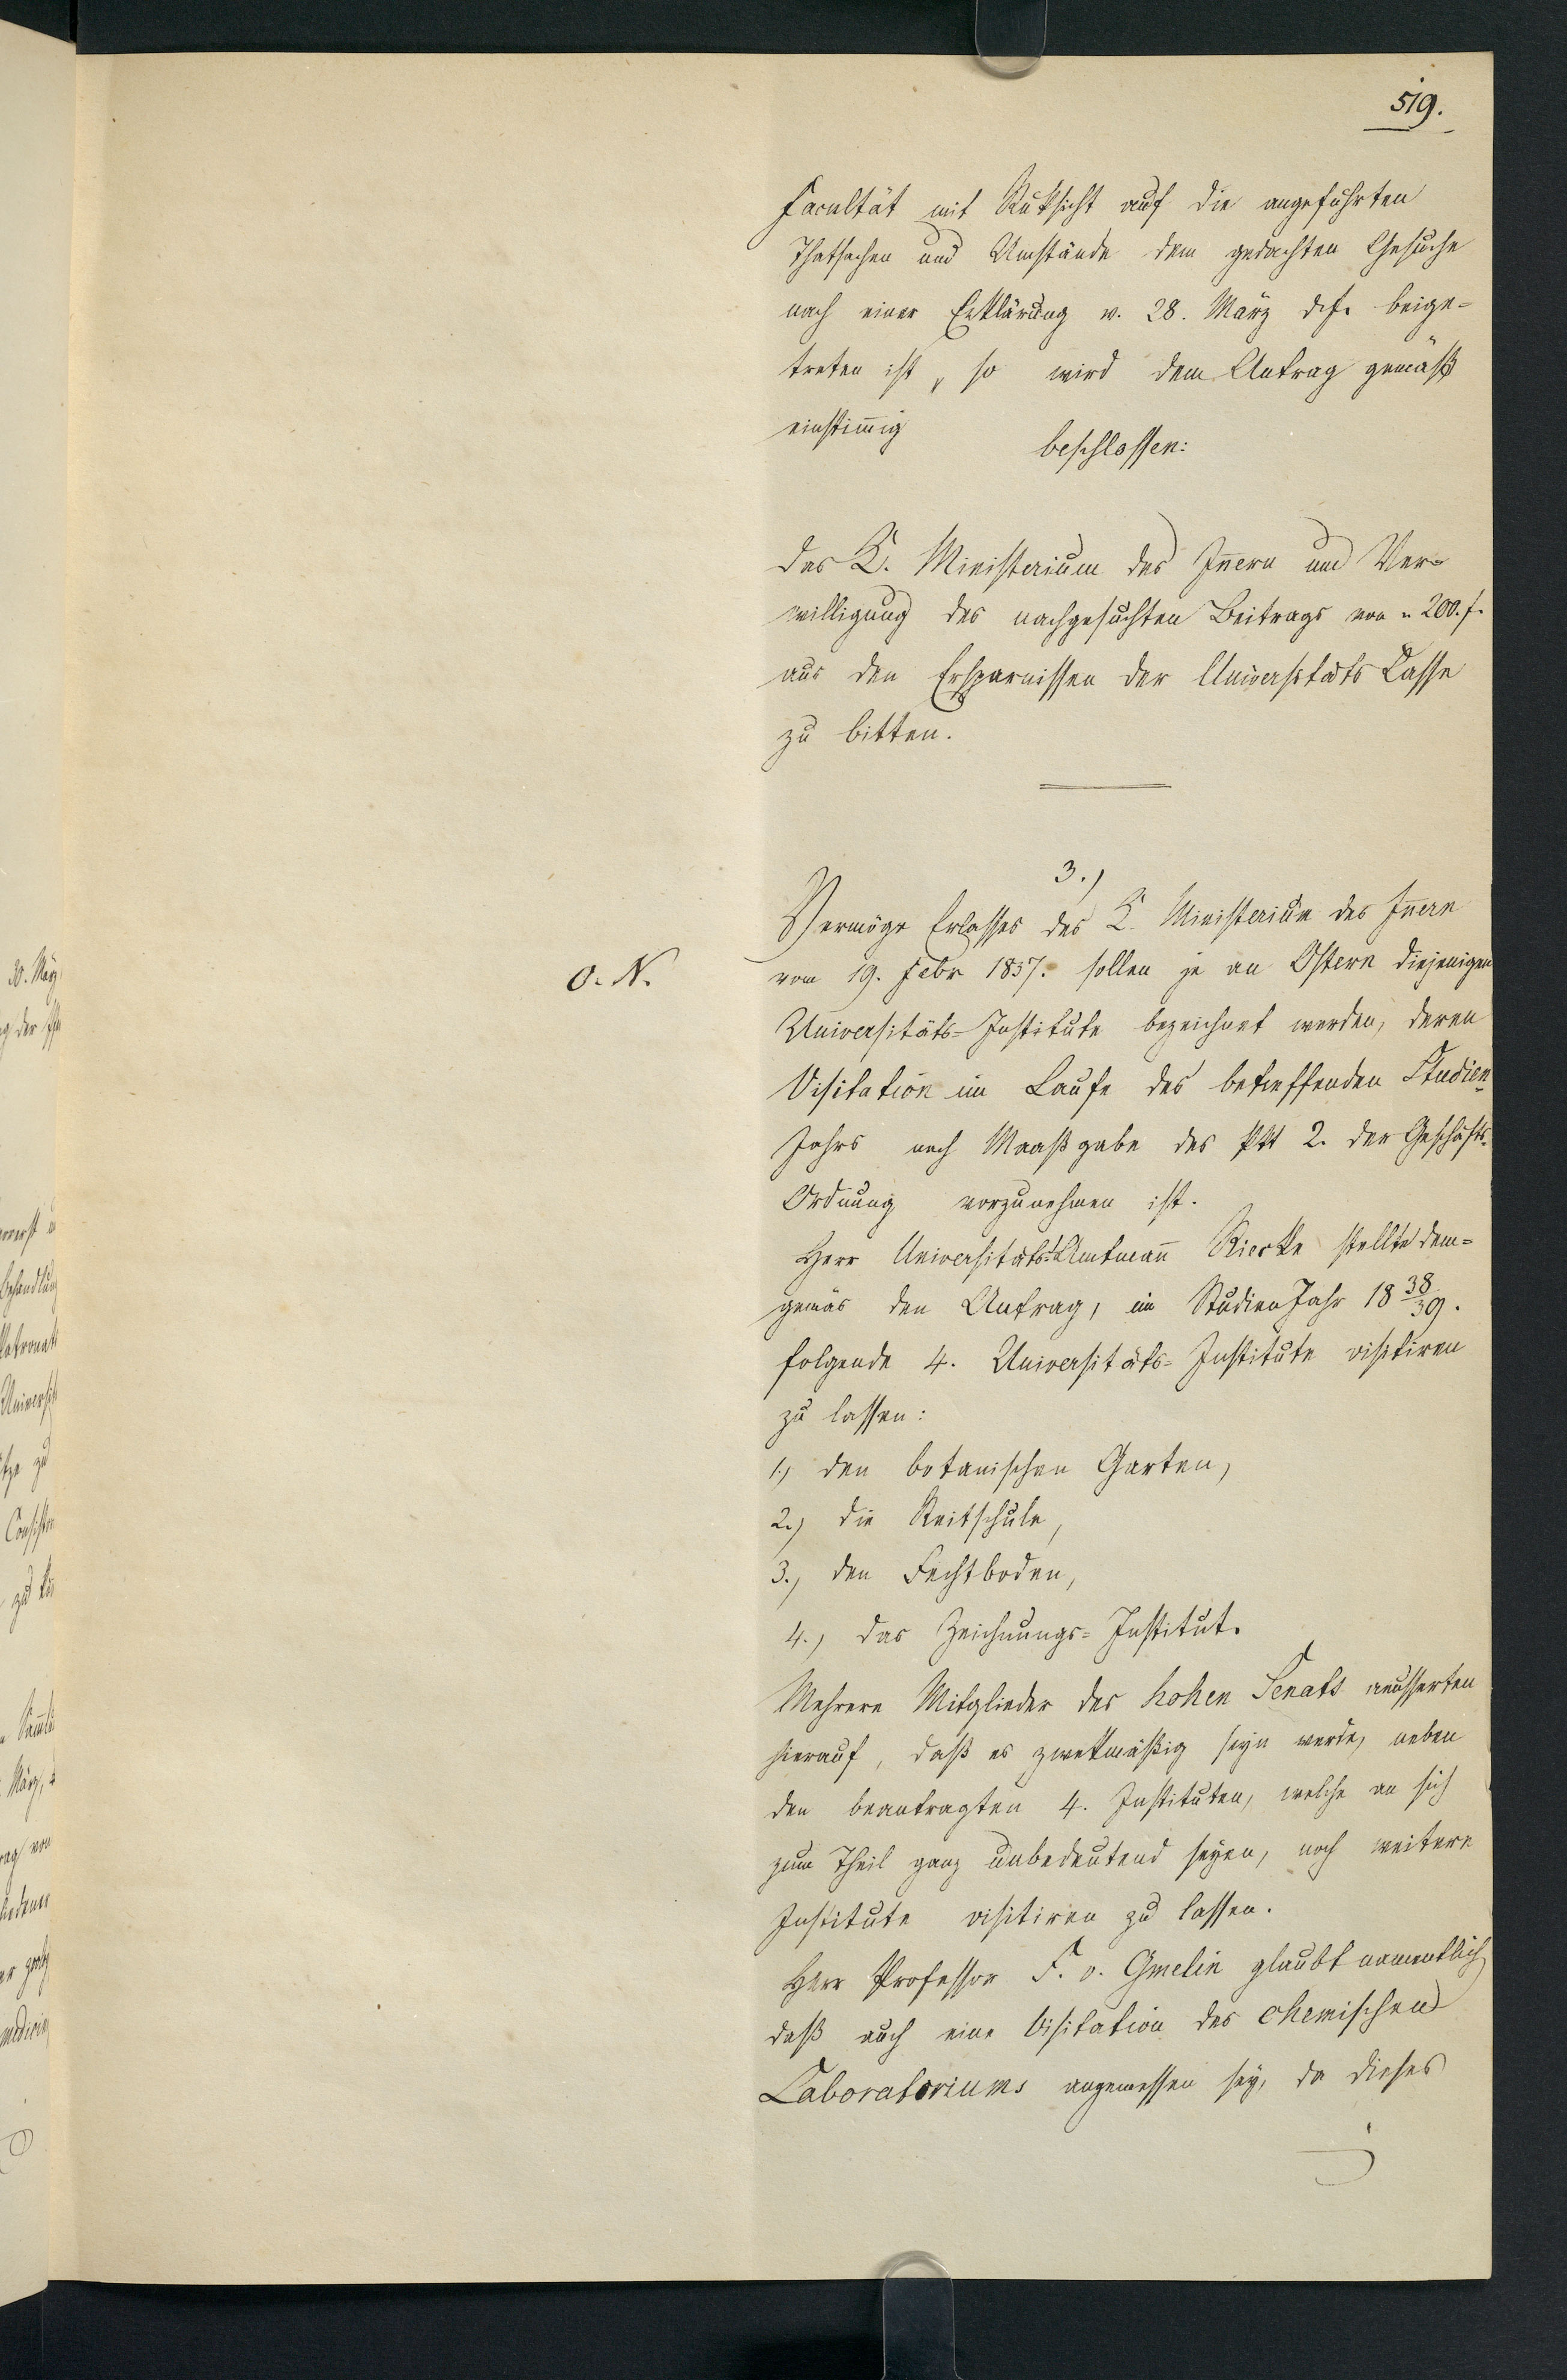 519.
Facultät mit Rüksicht auf die angeführten
Thatsachen und Umstände dem gedachten Gesuche
nach einer Erklärung v. 28. März d. J. beige-
treten ist, so wird dem Antrag gemäß
einstim̄ig
beschlossen:
das K. Ministerium des Iñern um Ver-
willigung des nachgesuchten Beitrags von 200. f.
aus den Ersparnissen der Universitäts Casse
zu bitten.
3.)
Vermöge Erlasses des K. Ministerium des Iñern
O. N.
vom 19. Febr 1837. sollen je an Ostern diejenigen
Universitäts-Institute bezeichnet werden, deren
Visitation im Laufe des betreffenden Studien-
Jahrs nach Maaßgabe des Pkt 2. der Geschäfts-
Ordnung vorzunehmen ist.
Herr Universitäts-Amtmañ Riecke stellte dem-
gemäs den Antrag, im Studien Jahr 18 38/39.
folgende 4. Universitäts-Institute visitiren
zu lassen:
1.) den botanischen Garten,
2.) die Reitschule,
3.) den Fechtboden,
4.) das Zeichnungs-Institut.
Mehrere Mitglieder des hohen Senats äusserten
hierauf, daß es zwekmäßig seyn werde, neben
den beantragten 4. Instituten, welche an sich
zum Theil ganz unbedeutend seyen, noch weitere
Institute visitiren zu lassen.
Herr Professor F. v. Gmelin glaubt namentlich
daß auch eine Visitation des chemischen
Laboratoriums angemessen sey, da dieses